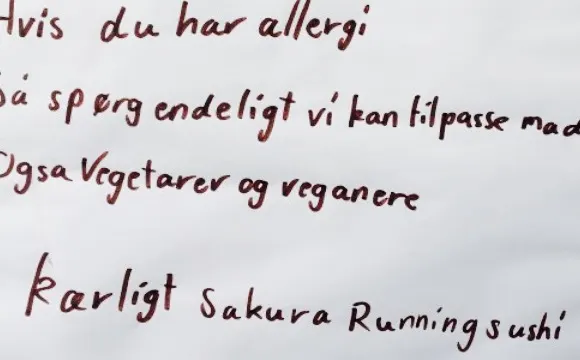 Hvis du har allergi
Så spørg endeligt vi kan tilpasse mad
Ogsa Vegetarer og veganere
kærligt Sakura Running sushi